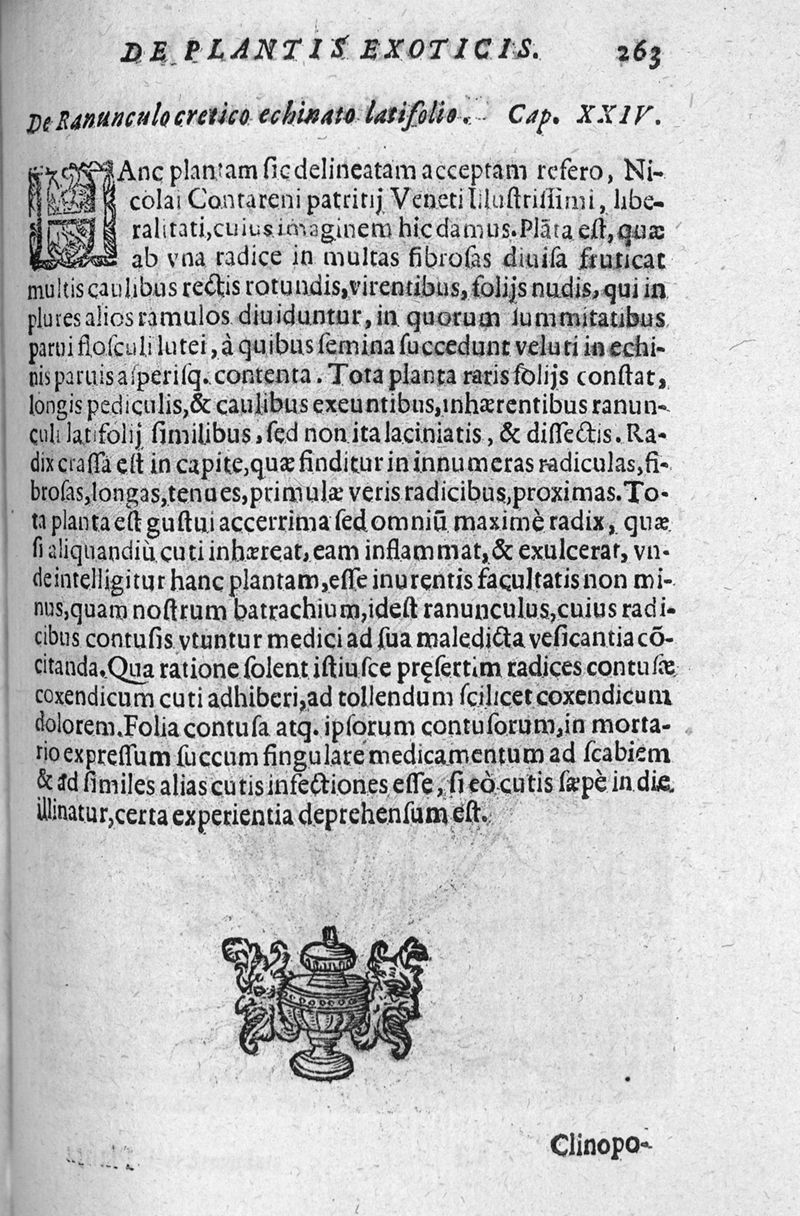 DE PLANTIS EXOTICIS. 263
De Ranunculo cretico echinato latifolio. Cap. XXIV.
HAnc plantam ſic delineatam acceptam refero, Ni-
colai Contareni patritij Veneti Illuſtriſſimi, libe-
ralitati, cuius imaginem hic damus. Plāta eſt, quæ
ab vna radice in multas fibroſas diuiſa fruticat
multis caulibus rectis rotundis, virentibus, folijs nudis, qui in
plures alios ramulos diuiduntur, in quorum ſummitatibus
parui floſculi lutei, à quibus ſemina ſuccedunt veluti in echi-
nis paruis aſperiſq. contenta. Tota planta raris folijs conſtat,
longis pediculis, & caulibus exeuntibus, inhærentibus ranun-
culi latifolij ſimilibus, ſed non ita laciniatis, & diſſectis. Ra-
dix craſſa eſt in capite, quæ finditur in innumeras radiculas, fi-
broſas, longas, tenues, primulæ veris radicibus, proximas. To-
ta planta eſt guſtui accerrima ſed omniū maximè radix, quæ
ſi aliquandiù cuti inhæreat, eam inflammat, & exulcerat, vn-
de intelligitur hanc plantam, eſſe inurentis facultatis non mi-
nus, quam noſtrum batrachium, ideſt ranunculus, cuius radi-
cibus contuſis vtuntur medici ad ſua maledicta veſicantia cō-
citanda. Qua ratione ſolent iſtiuſce pręſertim radices contuſæ
coxendicum cuti adhiberi, ad tollendum ſcilicet coxendicum
dolorem. Folia contuſa atq. ipſorum contuſorum, in morta-
rio expreſſum ſuccum ſingulare medicamentum ad ſcabiem
& ad ſimiles alias cutis infectiones eſſe, ſi eò cutis ſæpè in die
illinatur, certa experientia deprehenſum eſt.
Clinopo-